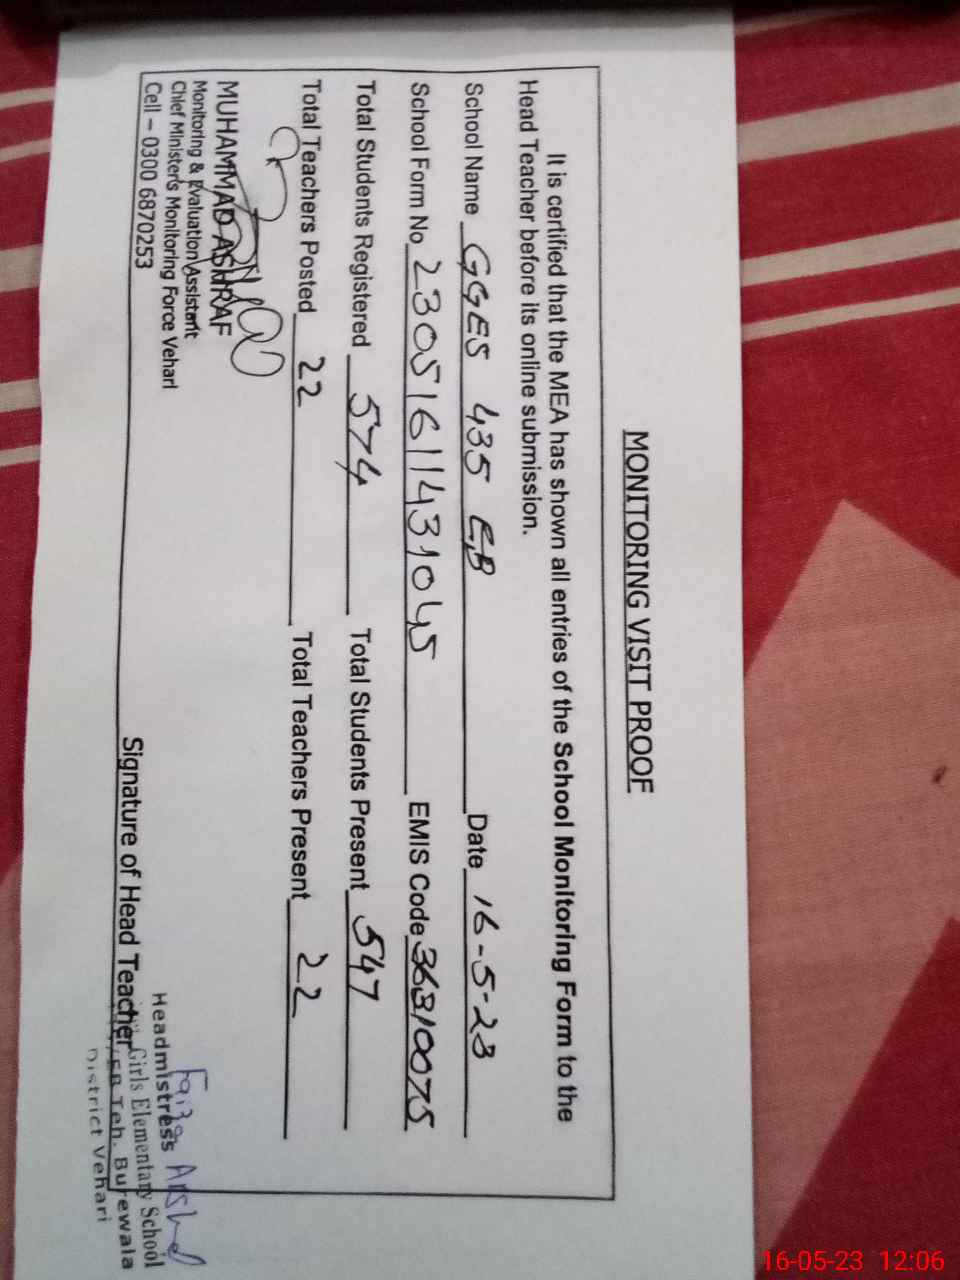 MONITORING VISIT PROOF
It is certified that the MEA has shown all entries of the School Monitoring Form to the
Head Teacher before its online submission.
School Name GGES 435 EB Date 16-5-23
School Form No 23051611431045 EMIS Code 36310075
Total Students Registered 574 Total Students Present 547
Total Teachers Posted 22 Total Teachers Present 22
MUHAMMAD ASHRAF
Monitoring & Evaluation Assistant
Chief Minister's Monitoring Force Vehari
Cell – 0300 6870253
Signature of Head Teacher
Faiza Arshad
Headmistress
Girls Elementary School
/EB Teh. Burewala
District Vehari
16-05-23 12:06